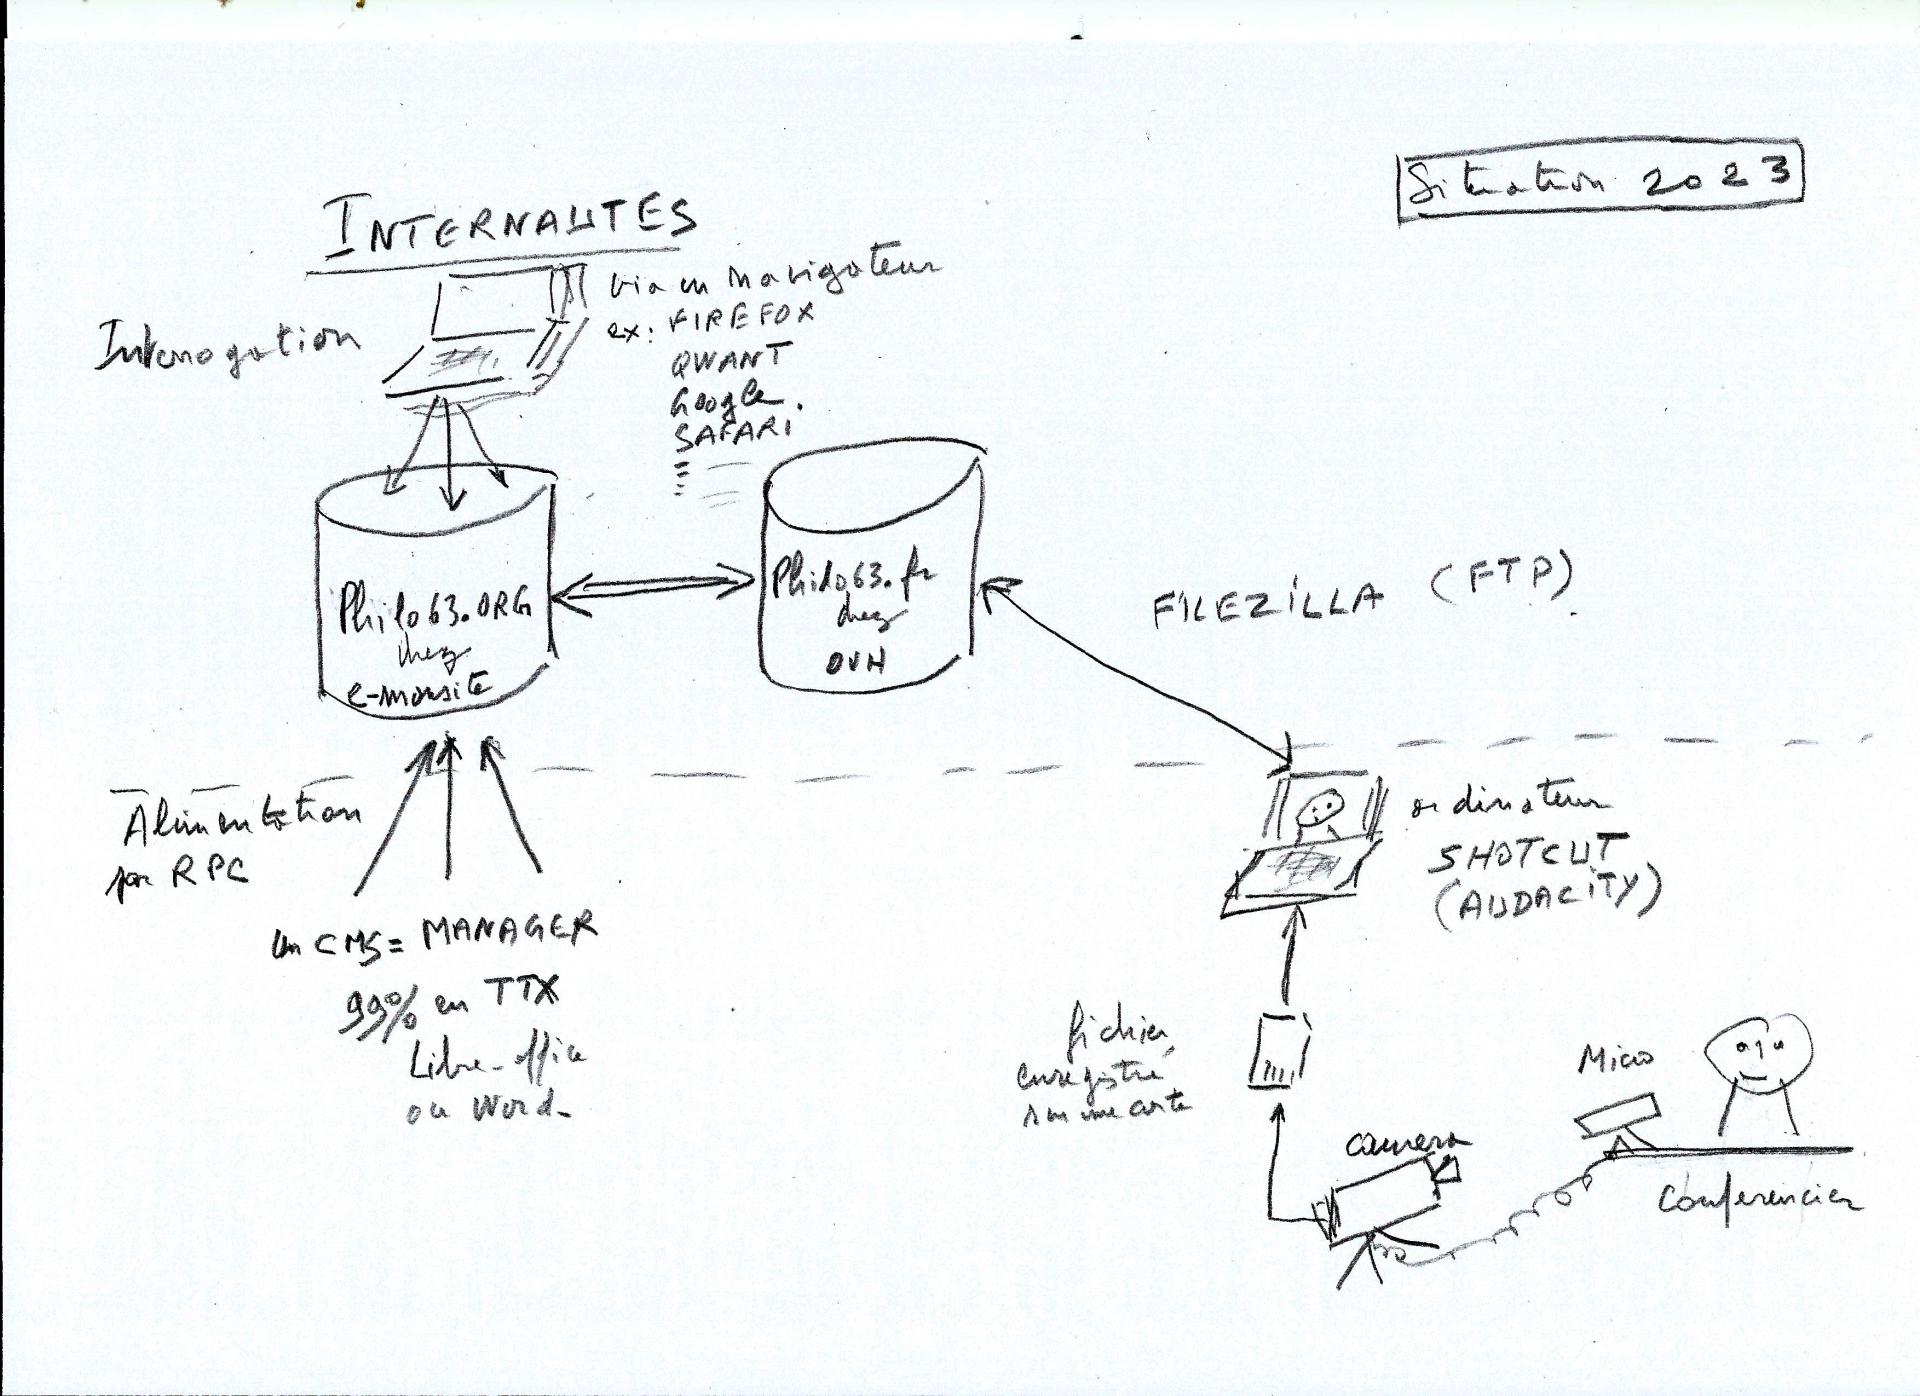 Situation 2023
INTERNAUTES
via un navigateur
ex: FIREFOX
QWANT
Google
SAFARI
Interrogation
Philo63.ORG
chez
e-monsite
Philo63.fr
chez
OVH
FILEZILLA (FTP)
Alimentation
par RPC
un CMS = MANAGER
99% en TTX
Libre-office
ou Word
ordinateur
SHOTCUT
(AUDACITY)
fichier
enregistré
sur une carte
camera
Micro
Conferencier